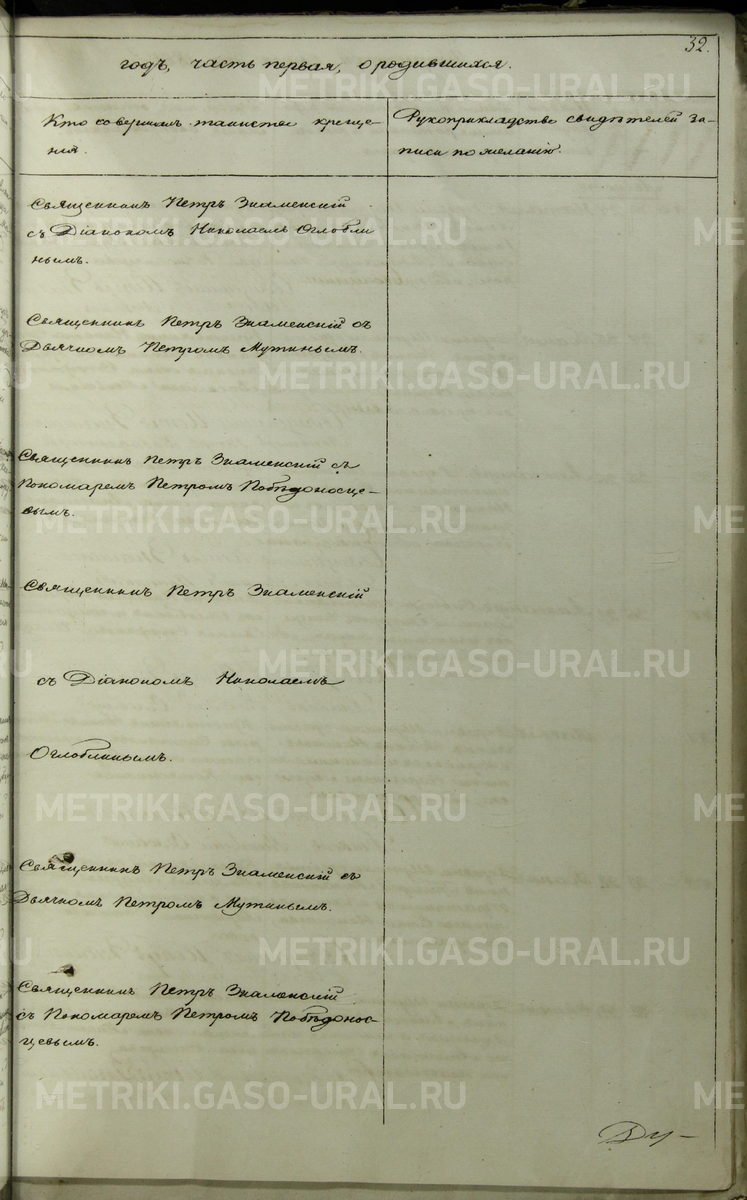 32.
годъ, часть первая, о родившихся.
Кто совершалъ таинство креще-
нія.
Рукоприкладство свидѣтелей за-
писи по желанію.
Священникъ Петръ Знаменскій
съ Діакономъ Николаемъ Оглобли
нымъ.
Священникъ Петръ Знаменскій съ
Дьячкомъ Петромъ Мутинымъ.
Священникъ Петръ Знаменскій съ
Пономаремъ Петромъ Побѣдоносце-
вымъ.
Священникъ Петръ Знаменскій
съ Діакономъ Николаемъ
Оглоблинымъ.
Священникъ Петръ Знаменскій съ
Дьячкомъ Петромъ Мутинымъ.
Священникъ Петръ Знаменскій
съ Пономаремъ Петромъ Побѣдонос-
цевымъ.
Ду-
METRIKI.GASO-URAL.RU